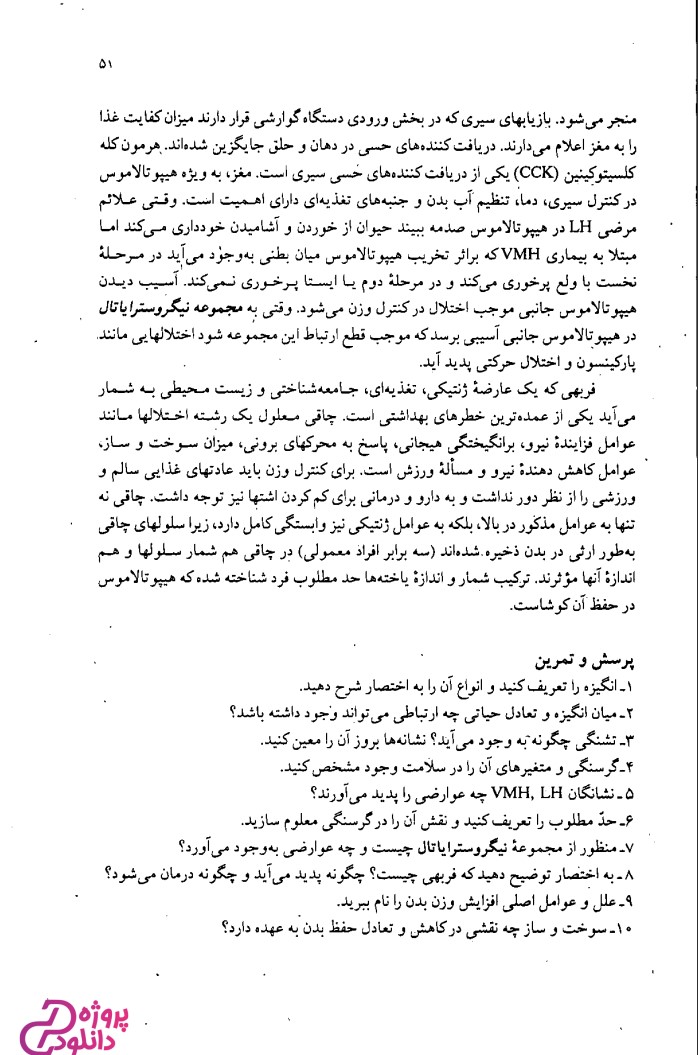 ۵۱
منجر می‌شود. بازیابهای سیری که در بخش ورودی دستگاه گوارشی قرار دارند میزان کفایت غذا
را به مغز اعلام می‌دارند. دریافت کننده‌های حسی در دهان و حلق جایگزین شده‌اند. هرمون کله
کلسیتوکینین (CCK) یکی از دریافت کننده‌های حسی سیری است. مغز، به ویژه هیپوتالاموس
در کنترل سیری، دما، تنظیم آب بدن و جنبه‌های تغذیه‌ای دارای اهمیت است. وقتی علائم
مرضی LH در هیپوتالاموس صدمه ببیند حیوان از خوردن و آشامیدن خودداری می‌کند اما
مبتلا به بیماری VMH که براثر تخریب هیپوتالاموس میان بطنی به‌وجود می‌آید در مرحلهٔ
نخست با ولع پرخوری می‌کند و در مرحلهٔ دوم یا ایستا پرخوری نمی‌کند. آسیب دیدن
هیپوتالاموس جانبی موجب اختلال در کنترل وزن می‌شود. وقتی به مجموعه نیگروسترایاتال
در هیپوتالاموس جانبی آسیبی برسد که موجب قطع ارتباط این مجموعه شود اختلالهایی مانند
پارکینسون و اختلال حرکتی پدید آید.
فربهی که یک عارضهٔ ژنتیکی، تغذیه‌ای، جامعه‌شناختی و زیست محیطی به شمار
می‌آید یکی از عمده‌ترین خطرهای بهداشتی است. چاقی معلول یک رشته اختلالها مانند
عوامل فزایندهٔ نیرو، برانگیختگی هیجانی، پاسخ به محرکهای برونی، میزان سوخت و ساز،
عوامل کاهش دهندهٔ نیرو و مسألهٔ ورزش است. برای کنترل وزن باید عادتهای غذایی سالم و
ورزشی را از نظر دور نداشت و به دارو و درمانی برای کم کردن اشتها نیز توجه داشت. چاقی نه
تنها به عوامل مذکور در بالا، بلکه به عوامل ژنتیکی نیز وابستگی کامل دارد، زیرا سلولهای چاقی
به‌طور ارثی در بدن ذخیره شده‌اند (سه برابر افراد معمولی) در چاقی هم شمار سلولها و هم
اندازهٔ آنها مؤثرند. ترکیب شمار و اندازهٔ یاخته‌ها حد مطلوب فرد شناخته شده که هیپوتالاموس
در حفظ آن کوشاست.
پرسش و تمرین
۱ـ انگیزه را تعریف کنید و انواع آن را به اختصار شرح دهید.
۲ـ میان انگیزه و تعادل حیاتی چه ارتباطی می‌تواند وجود داشته باشد؟
۳ـ تشنگی چگونه به وجود می‌آید؟ نشانه‌ها بروز آن را معین کنید.
۴ـ گرسنگی و متغیرهای آن را در سلامت وجود مشخص کنید.
۵ ـ نشانگان VMH, LH چه عوارضی را پدید می‌آورند؟
۶ـ حدّ مطلوب را تعریف کنید و نقش آن را در گرسنگی معلوم سازید.
۷ـ منظور از مجموعهٔ نیگروسترایاتال چیست و چه عوارضی به‌وجود می‌آورد؟
۸ ـ به اختصار توضیح دهید که فربهی چیست؟ چگونه پدید می‌آید و چگونه درمان می‌شود؟
۹ـ علل و عوامل اصلی افزایش وزن بدن را نام ببرید.
۱۰ـ سوخت و ساز چه نقشی در کاهش و تعادل حفظ بدن به عهده دارد؟
پروژه
دانلود